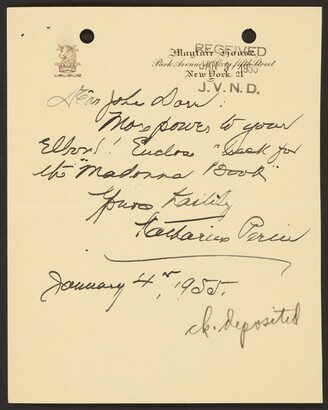 Mayfair House
Park Avenue at Sixty fifth Street
New York 21
RECEIVED
1955
J. V. N. D.
Dear John Dorr:
More power to your
Elbow! Enclose check for
the "Madonna Book"
Yours
Katharine
January 4, 1955.
ck. deposited